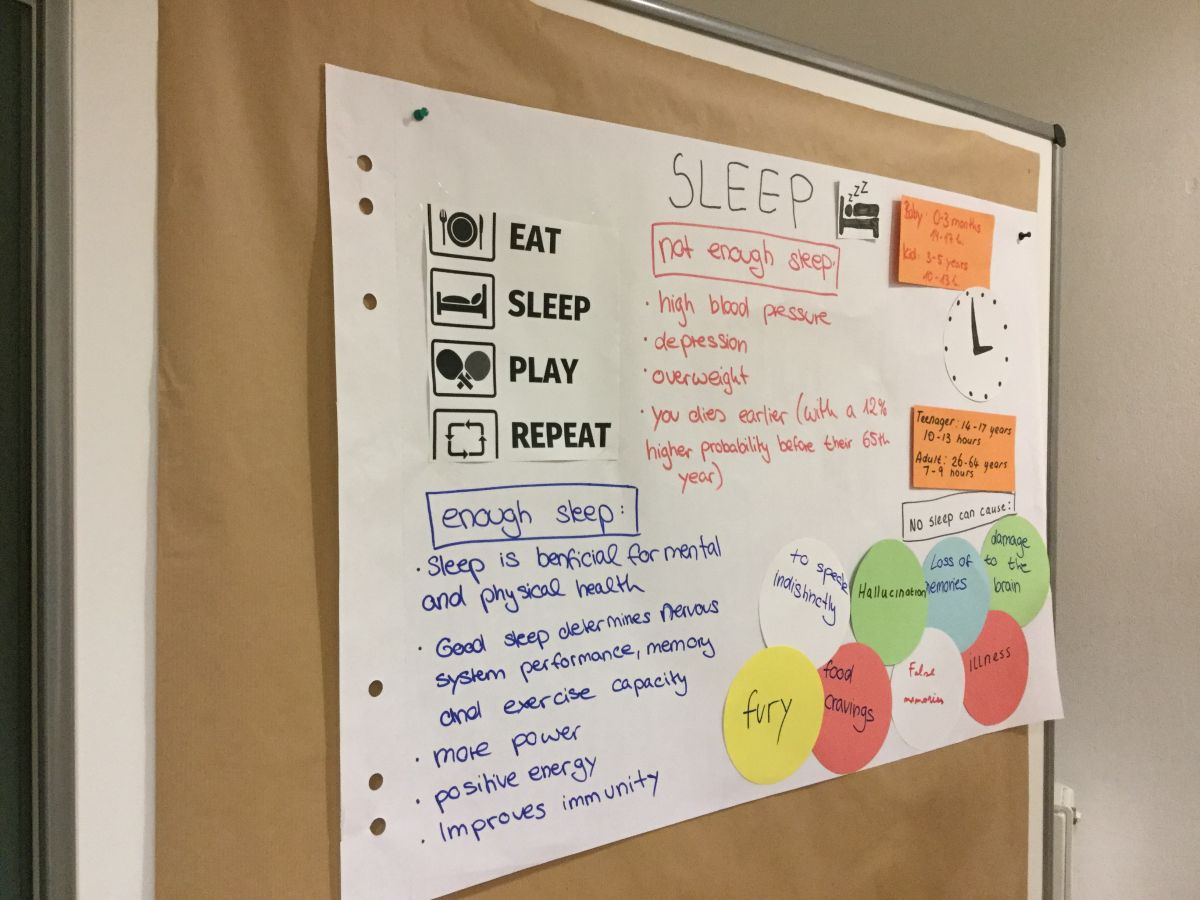 SLEEP
zzZ
EAT
SLEEP
PLAY
REPEAT
not enough sleep:
· high blood pressure
· depression
· overweight
· you dies earlier (with a 12%
higher probability before their 65th
year)
Baby: 0-3 months
14-17h
Kid: 3-5 years
10-13h
Teenager: 14-17 years
10-13 hours
Adult: 26-64 years
7-9 hours
enough sleep:
· Sleep is benficial for mental
and physical health
· Good sleep determines nervous
system performance, memory
and exercise capacity
· more power
· positive energy
· Improves immunity
No sleep can cause:
to speak
indistinctly
Hallucination
Loss of
memories
damage
to the
brain
fury
food
cravings
False
memories
illness